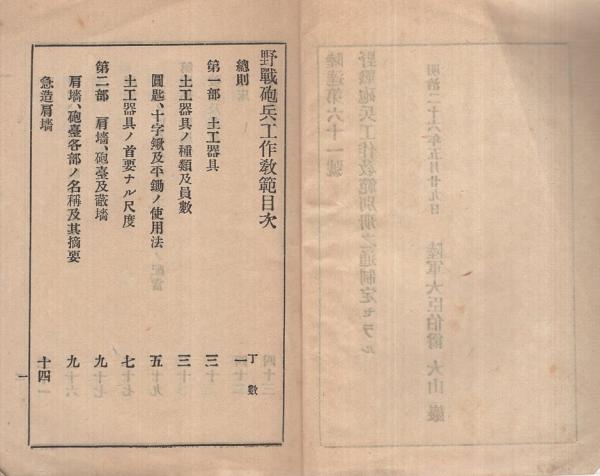 野戰砲兵工作敎範目次
丁數
總則 一
第一部 土工器具 三
土工器具ノ種類及員數 三
圓匙、十字鍬及平鋤ノ使用法 五
土工器具ノ首要ナル尺度 七
第二部 肩墻、砲臺及蔽墻 九
肩墻、砲臺各部ノ名稱及其摘要 九
急造肩墻 十四
一
陸達第六十一號
野戰砲兵工作敎範別册之通制定セラル
明治二十六年五月廿九日
陸軍大臣伯爵 大山 巖